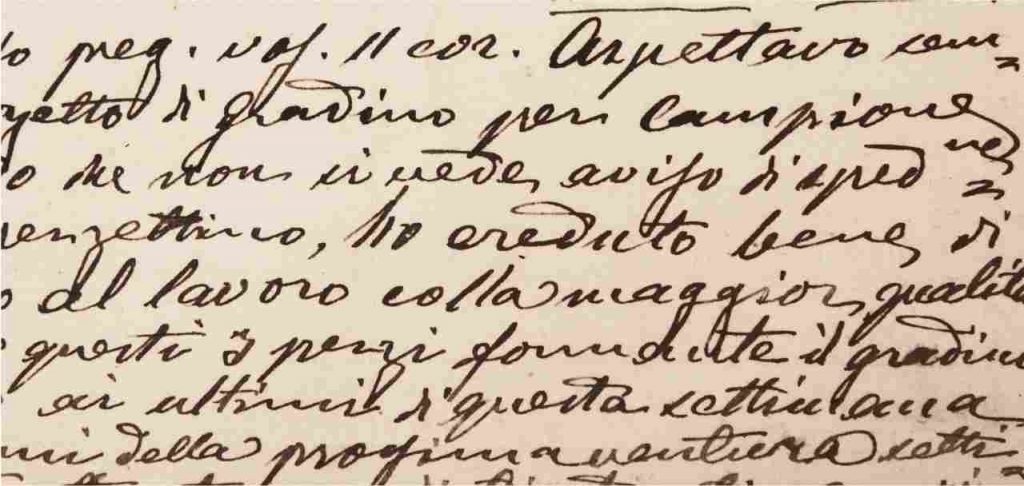 preg. vos. 11 cor. Aspettavo sem=
di gradino per campione
o che non si vede, aviso di sped=
ho creduto bene di
al lavoro colla maggior qualità
questi 3 pezzi formante il gradin
ai ultimi di questa settimana
della prossima ventura setti